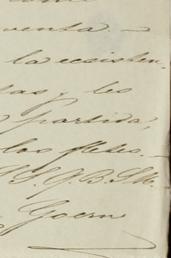 venta. —
la ecsisten-
tas, y les
partida,
los fletes. —
S. S. Q. B. S. M.
Goern